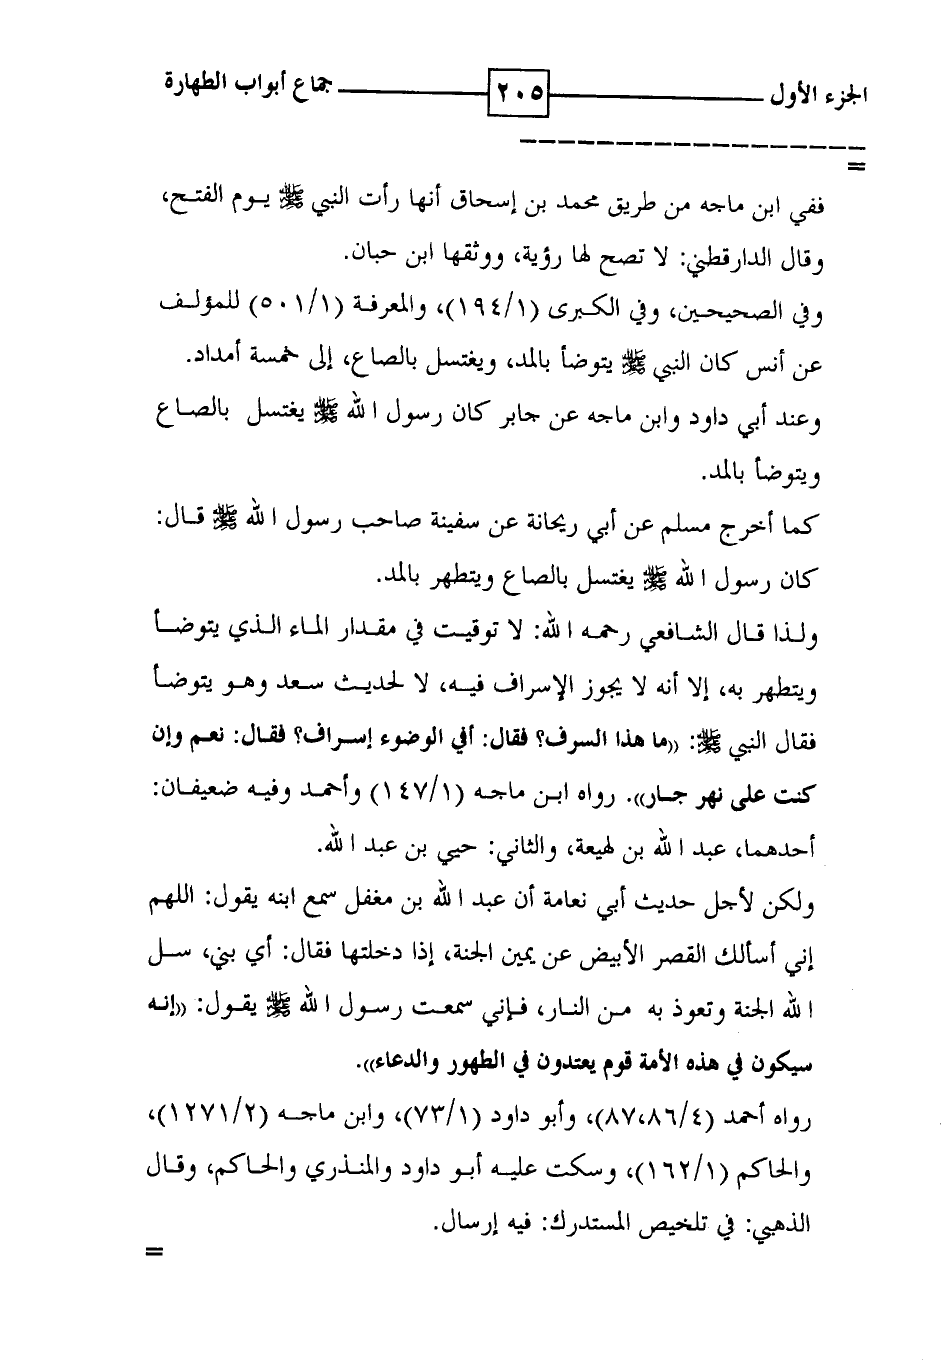 الجزء الأول ٢٠٥ جماع أبواب الطهارة
=
ففي ابن ماجه من طريق محمد بن إسحاق أنها رأت النبي ﷺ يوم الفتح،
وقال الدارقطني: لا تصح لها رؤية، ووثقها ابن حبان.
وفي الصحيحين، وفي الكبرى (١٩٤/١)، والمعرفة (٥٠١/١) للمؤلف
عن أنس كان النبي ﷺ يتوضأ بالمد، ويغتسل بالصاع، إلى خمسة أمداد.
وعند أبي داود وابن ماجه عن جابر كان رسول الله ﷺ يغتسل بالصاع
ويتوضأ بالمد.
كما أخرج مسلم عن أبي ريحانة عن سفينة صاحب رسول الله ﷺ قال:
كان رسول الله ﷺ يغتسل بالصاع ويتطهر بالمد.
ولذا قال الشافعي رحمه الله: لا توقيت في مقدار الماء الذي يتوضأ
ويتطهر به، إلا أنه لا يجوز الإسراف فيه، لا لحديث سعد وهو يتوضأ
فقال النبي ﷺ: ((ما هذا السرف؟ فقال: أفي الوضوء إسراف؟ فقال: نعم وإن
كنت على نهر جار)). رواه ابن ماجه (١٤٧/١) وأحمد وفيه ضعيفان:
أحدهما، عبد الله بن لهيعة، والثاني: حيي بن عبد الله.
ولكن لأجل حديث أبي نعامة أن عبد الله بن مغفل سمع ابنه يقول: اللهم
إني أسألك القصر الأبيض عن يمين الجنة، إذا دخلتها فقال: أي بني، سل
الله الجنة وتعوذ به من النار، فإني سمعت رسول الله ﷺ يقول: ((إنه
سيكون في هذه الأمة قوم يعتدون في الطهور والدعاء)).
رواه أحمد (٨٧،٨٦/٤)، وأبو داود (٧٣/١)، وابن ماجه (١٢٧١/٢)،
والحاكم (١٦٢/١)، وسكت عليه أبو داود والمنذري والحاكم، وقال
الذهبي: في تلخيص المستدرك: فيه إرسال.
=